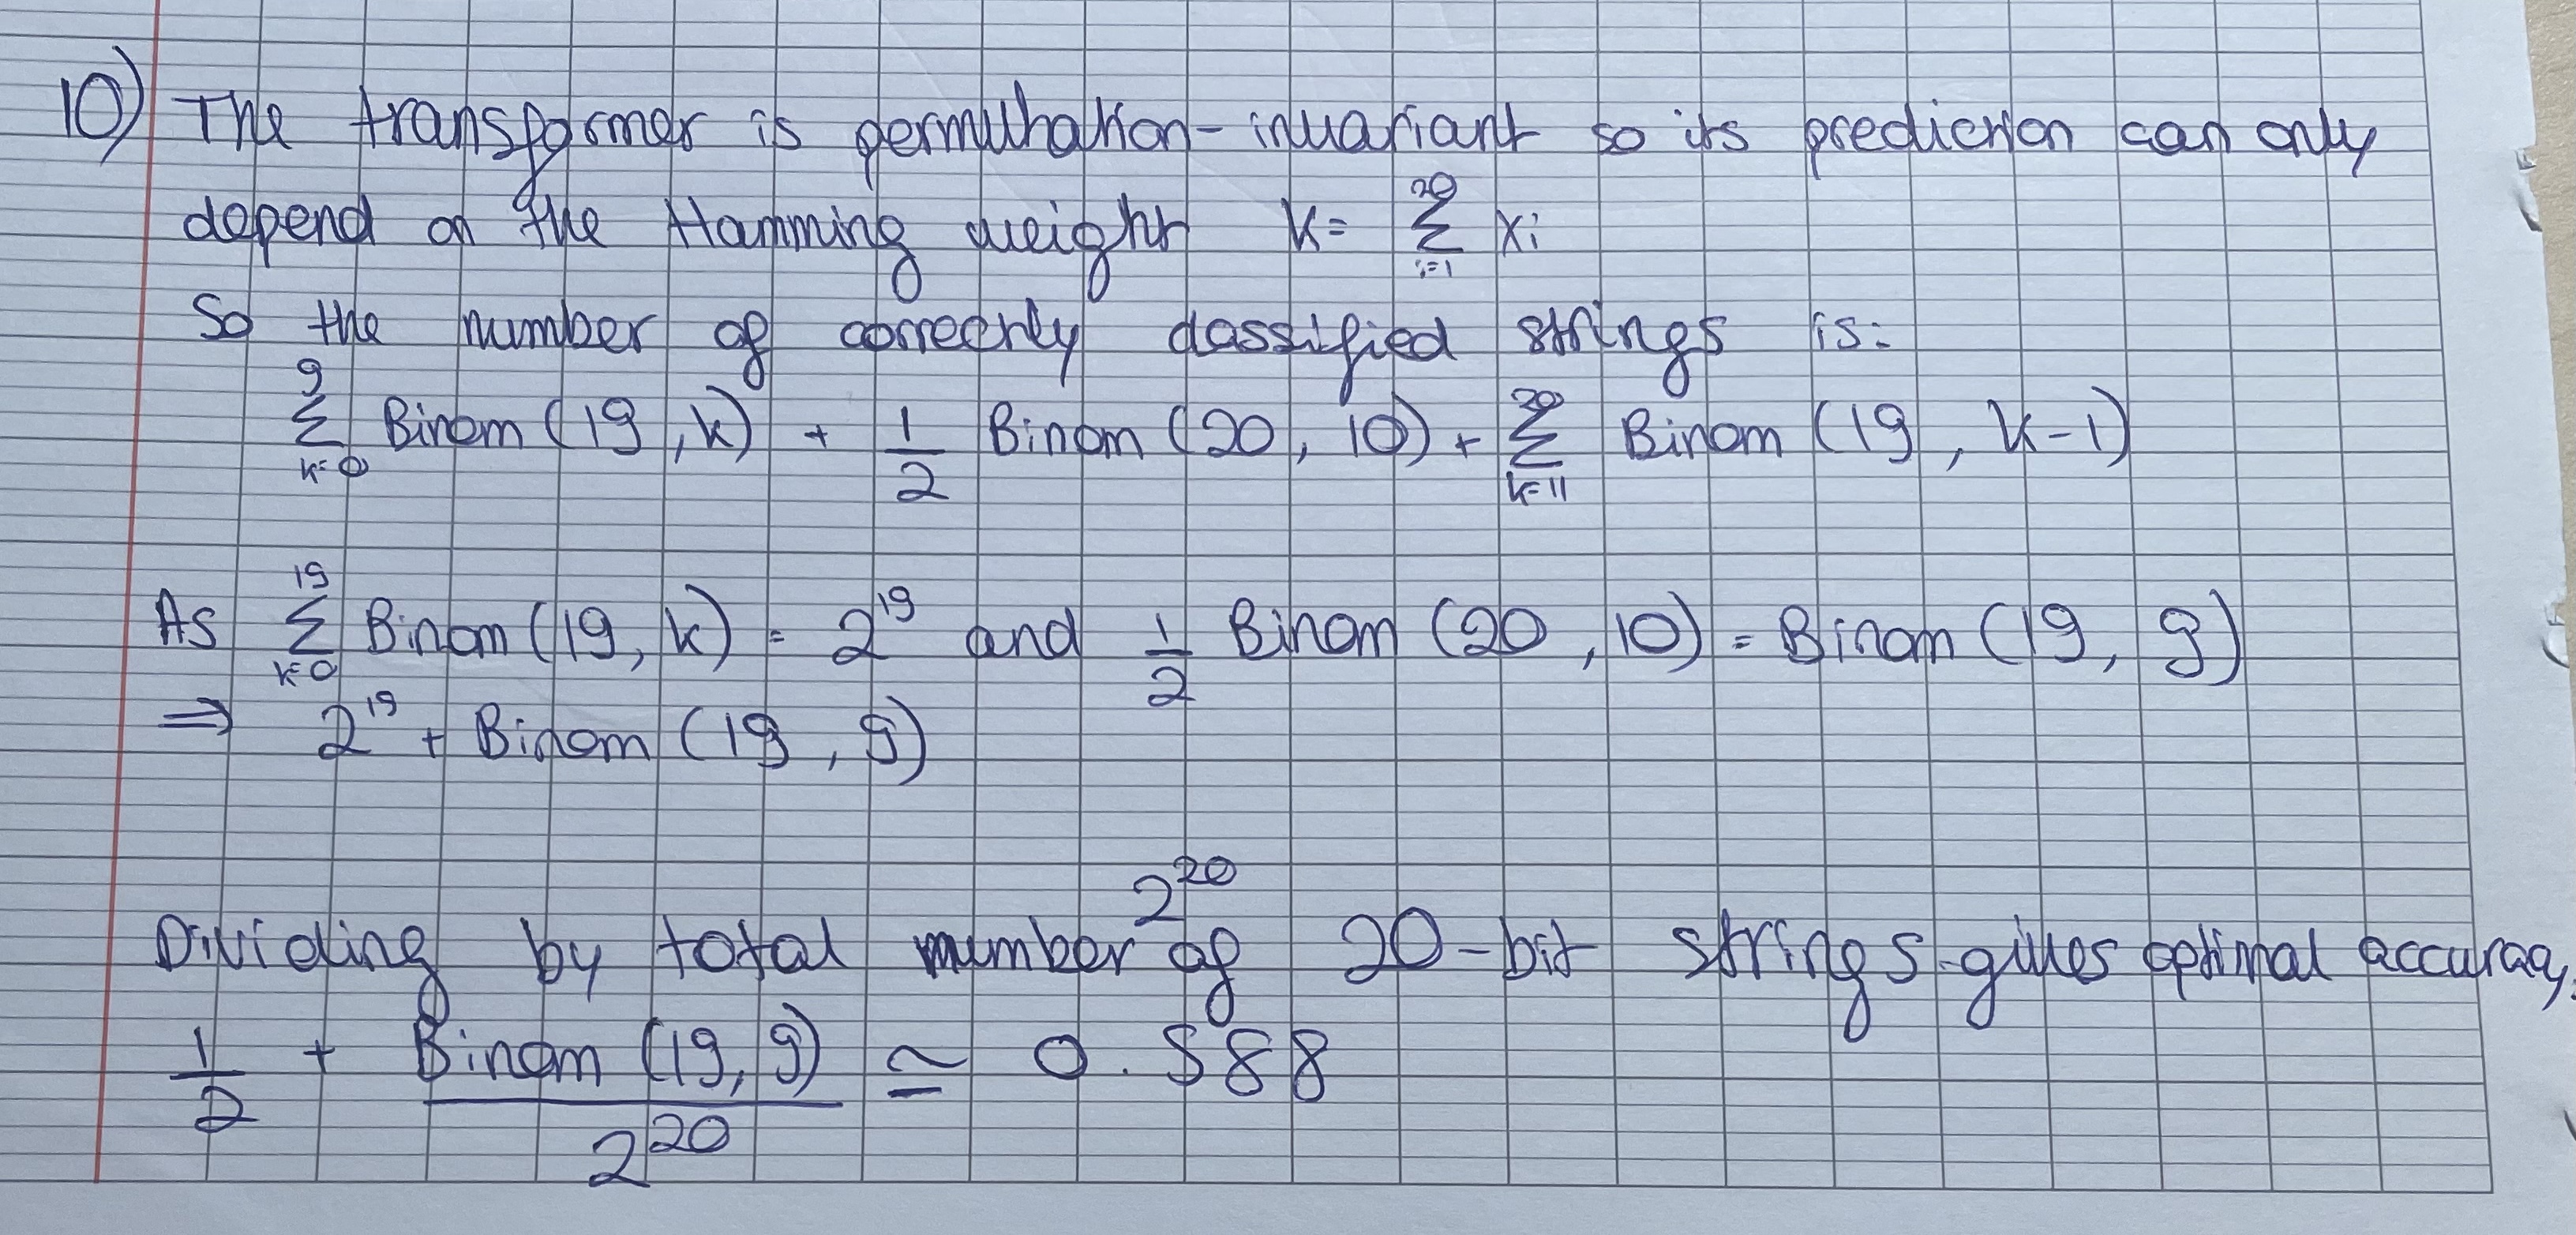 10) The transformer is permutation-invariant so its prediction can only
depend on the Hamming weight k = ∑_{i=1}^{20} xi
So the number of correctly classified strings is:
∑_{k=0}^{9} Binom (19, k) + 1/2 Binom (20, 10) + ∑_{k=11}^{20} Binom (19, k-1)
As ∑_{k=0}^{19} Binom (19, k) = 2^{19} and 1/2 Binom (20, 10) = Binom (19, 9)
⇒ 2^{19} + Binom (19, 9)
Dividing by total number 2^{20} of 20-bit strings gives optimal accuracy:
1/2 + Binom (19, 9) / 2^{20} ≃ 0.588